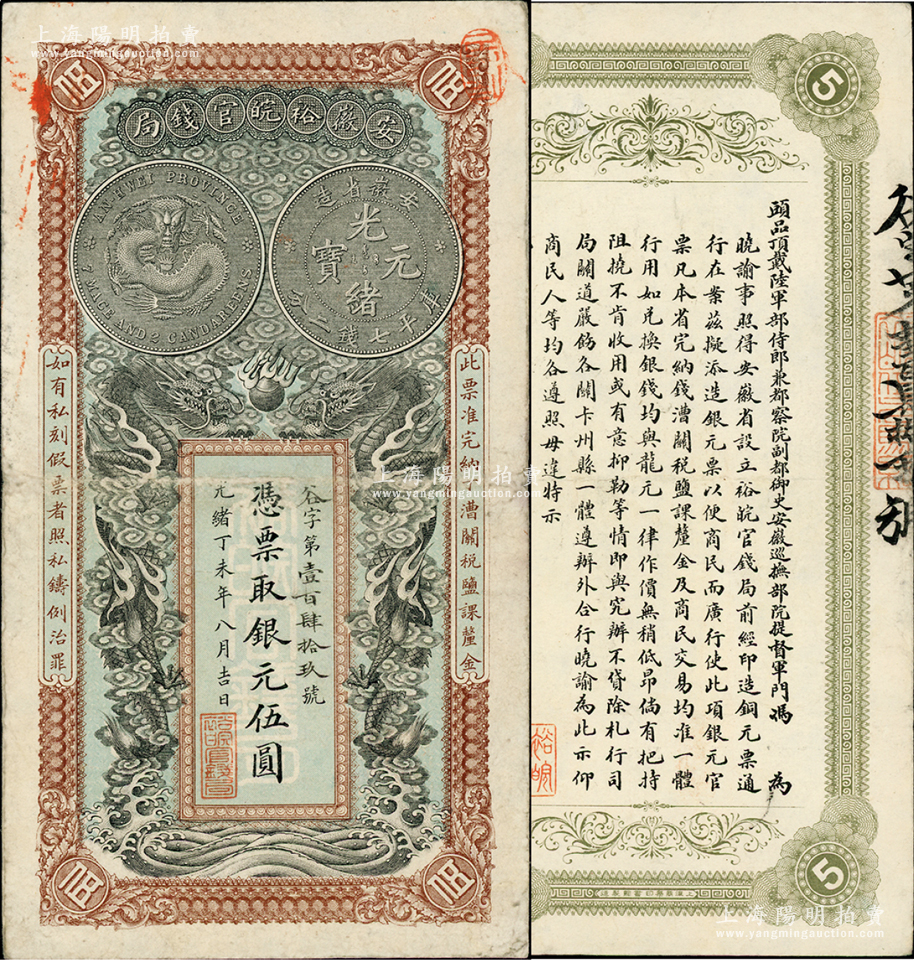 上海陽明拍賣
www.yangmingauction.com
伍
伍
安徽裕皖官錢局
AN HWEI PROVINCE
7 MACE AND 2 CANDAREENS
安徽省造
光緒元寶
庫平七錢二分
此票准完納錢漕關稅鹽課釐金
如有私刻假票者照私鑄例治罪
谷字第壹百肆拾玖號
憑票取銀元伍圓
光緒丁未年八月吉日
伍
伍
5
頭品頂戴陸軍部侍郎兼都察院副都御史安徽巡撫部院提督軍門馮 為
曉諭事照得安徽省設立裕皖官錢局前經印造銅元票通
行在案茲擬添造銀元票以便商民而廣行使此項銀元官
票凡本省完納錢漕關稅鹽課釐金及商民交易均准一體
行用如兌換銀錢均與龍元一律作價無稍低昂倘有把持
阻撓不肯收用或有意抑勒等情即與究辦不貸除札行司
局關道嚴飭各關卡州縣一體遵辦外合行曉諭為此示仰
商民人等均各遵照毋違特示
裕皖
5
上海陽明拍賣
www.yangmingauction.com
上海陽明拍賣
www.yangmingauction.com